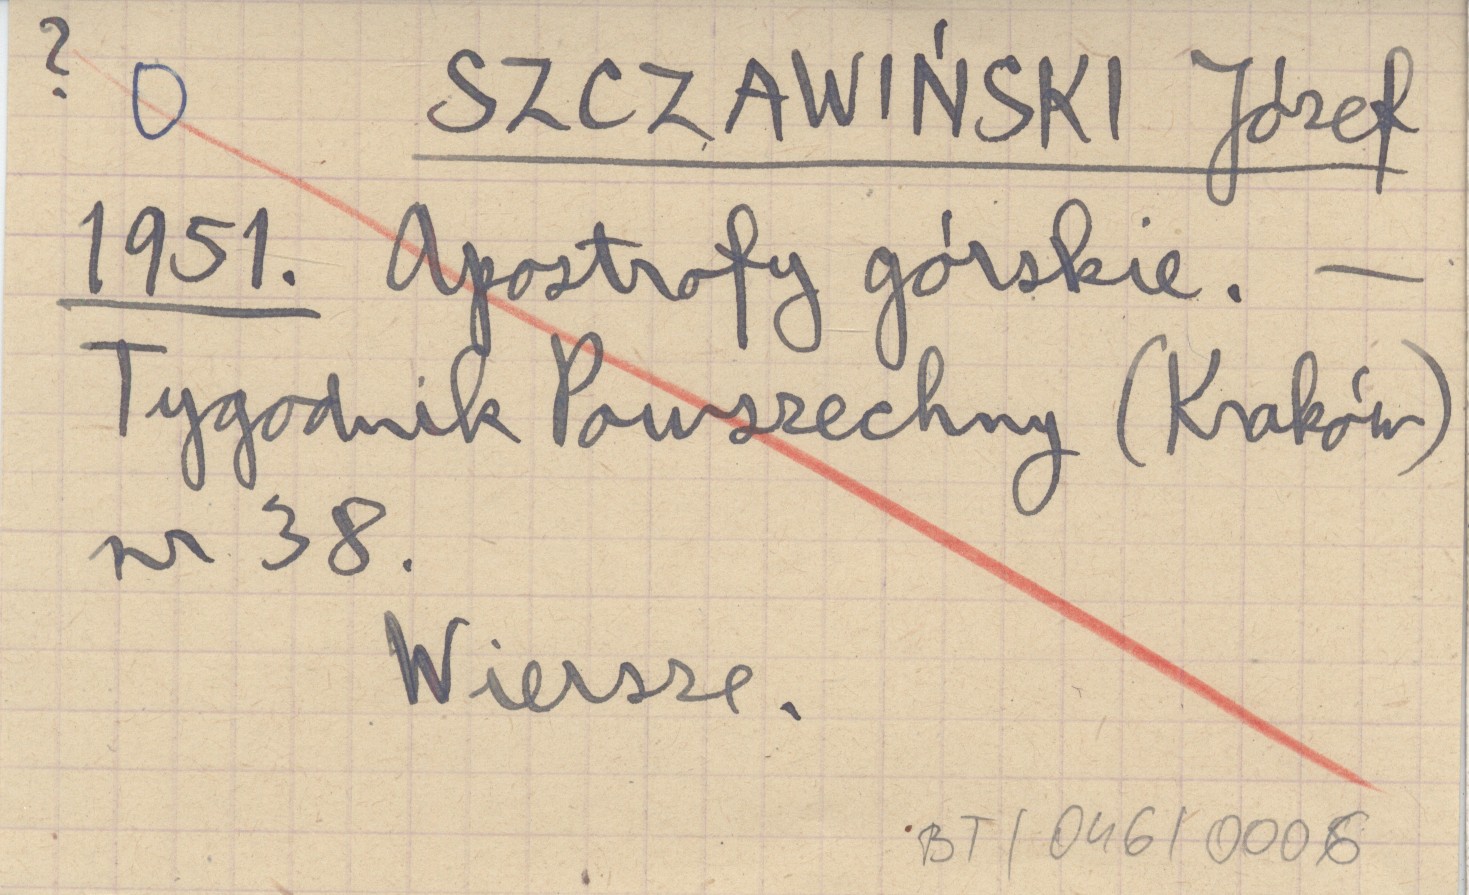 ? O SZCZAWIŃSKI Józef
1951. Apostrofy górskie. —
Tygodnik Powszechny (Kraków)
nr 38.
Wiersze.
BT/046/0006